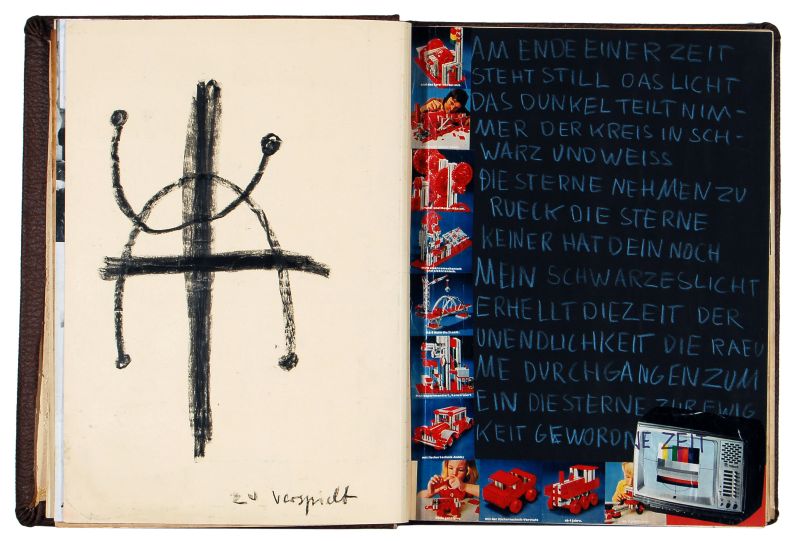 zu verspielt
AM ENDE EINER ZEIT
STEHT STILL DAS LICHT
DAS DUNKEL TEILT NIM-
MER DER KREIS IN SCH-
WARZ UND WEISS
DIE STERNE NEHMEN ZU
RUECK DIE STERNE
KEINER HAT DEIN NOCH
MEIN SCHWARZESLICHT
ERHELLT DIE ZEIT DER
UNENDLICHKEIT DIE RAEU
ME DURCHGANGEN ZUM
EIN DIE STERNE ZUR EWIG
KEIT GEWORDNE ZEIT